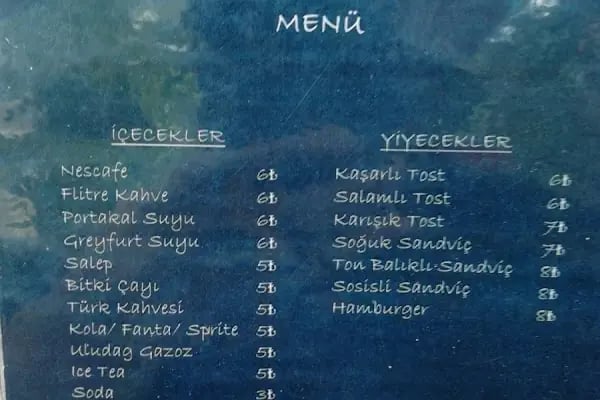 MENÜ
İÇECEKLER
Nescafe 6₺
Flitre Kahve 6₺
Portakal Suyu 6₺
Greyfurt Suyu 6₺
Salep 5₺
Bitki Çayı 5₺
Türk Kahvesi 5₺
Kola/ Fanta/ Sprite 5₺
Uludag Gazoz 5₺
Ice Tea 5₺
Soda 3₺
YİYECEKLER
Kaşarlı Tost 6₺
Salamlı Tost 6₺
Karışık Tost 7₺
Soğuk Sandviç 7₺
Ton Balıklı Sandviç 8₺
Sosisli Sandviç 8₺
Hamburger 8₺